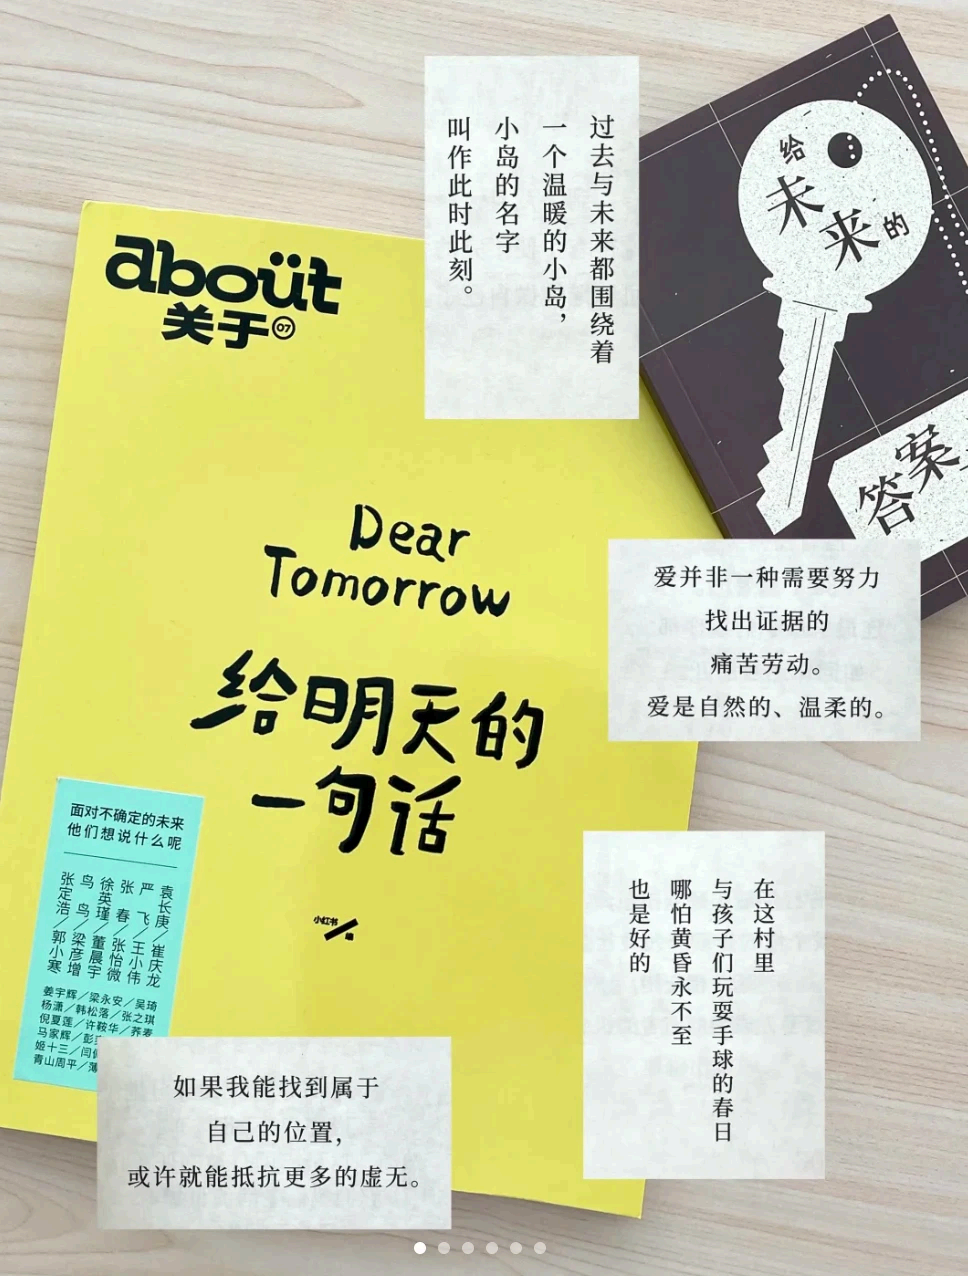 过去与未来都围绕着
一个温暖的小岛，
小岛的名字
叫作此时此刻。
给
未来
的
答案
about
关于 07
Dear
Tomorrow
给明天的
一句话
小红书
爱并非一种需要努力
找出证据的
痛苦劳动。
爱是自然的、温柔的。
面对不确定的未来
他们想说什么呢
袁长庚／崔庆龙
严飞／王小伟
张春／张怡微
徐英瑾／董晨宇
鸟鸟／梁彦增
张定浩／郭小寒
姜宇辉／梁永安／吴琦
杨潇／韩松落／张之琪
倪夏莲／许鞍华／荞麦
马家辉／彭
姬十三／闫
青山周平／薄
在这村里
与孩子们玩耍手球的春日
哪怕黄昏永不至
也是好的
如果我能找到属于
自己的位置，
或许就能抵抗更多的虚无。